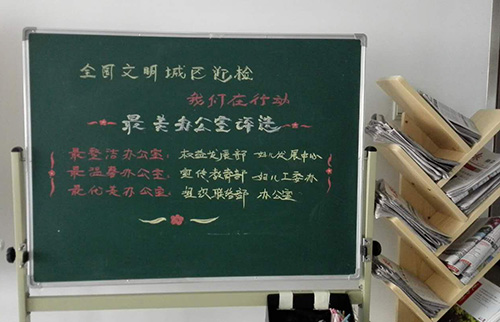 全国文明城区迎检
我们在行动
最美办公室评选
最整洁办公室: 权益发展部 妇儿发展中心
最温馨办公室: 宣传教育部 妇儿工委办
最优美办公室: 组织联络部 办公室